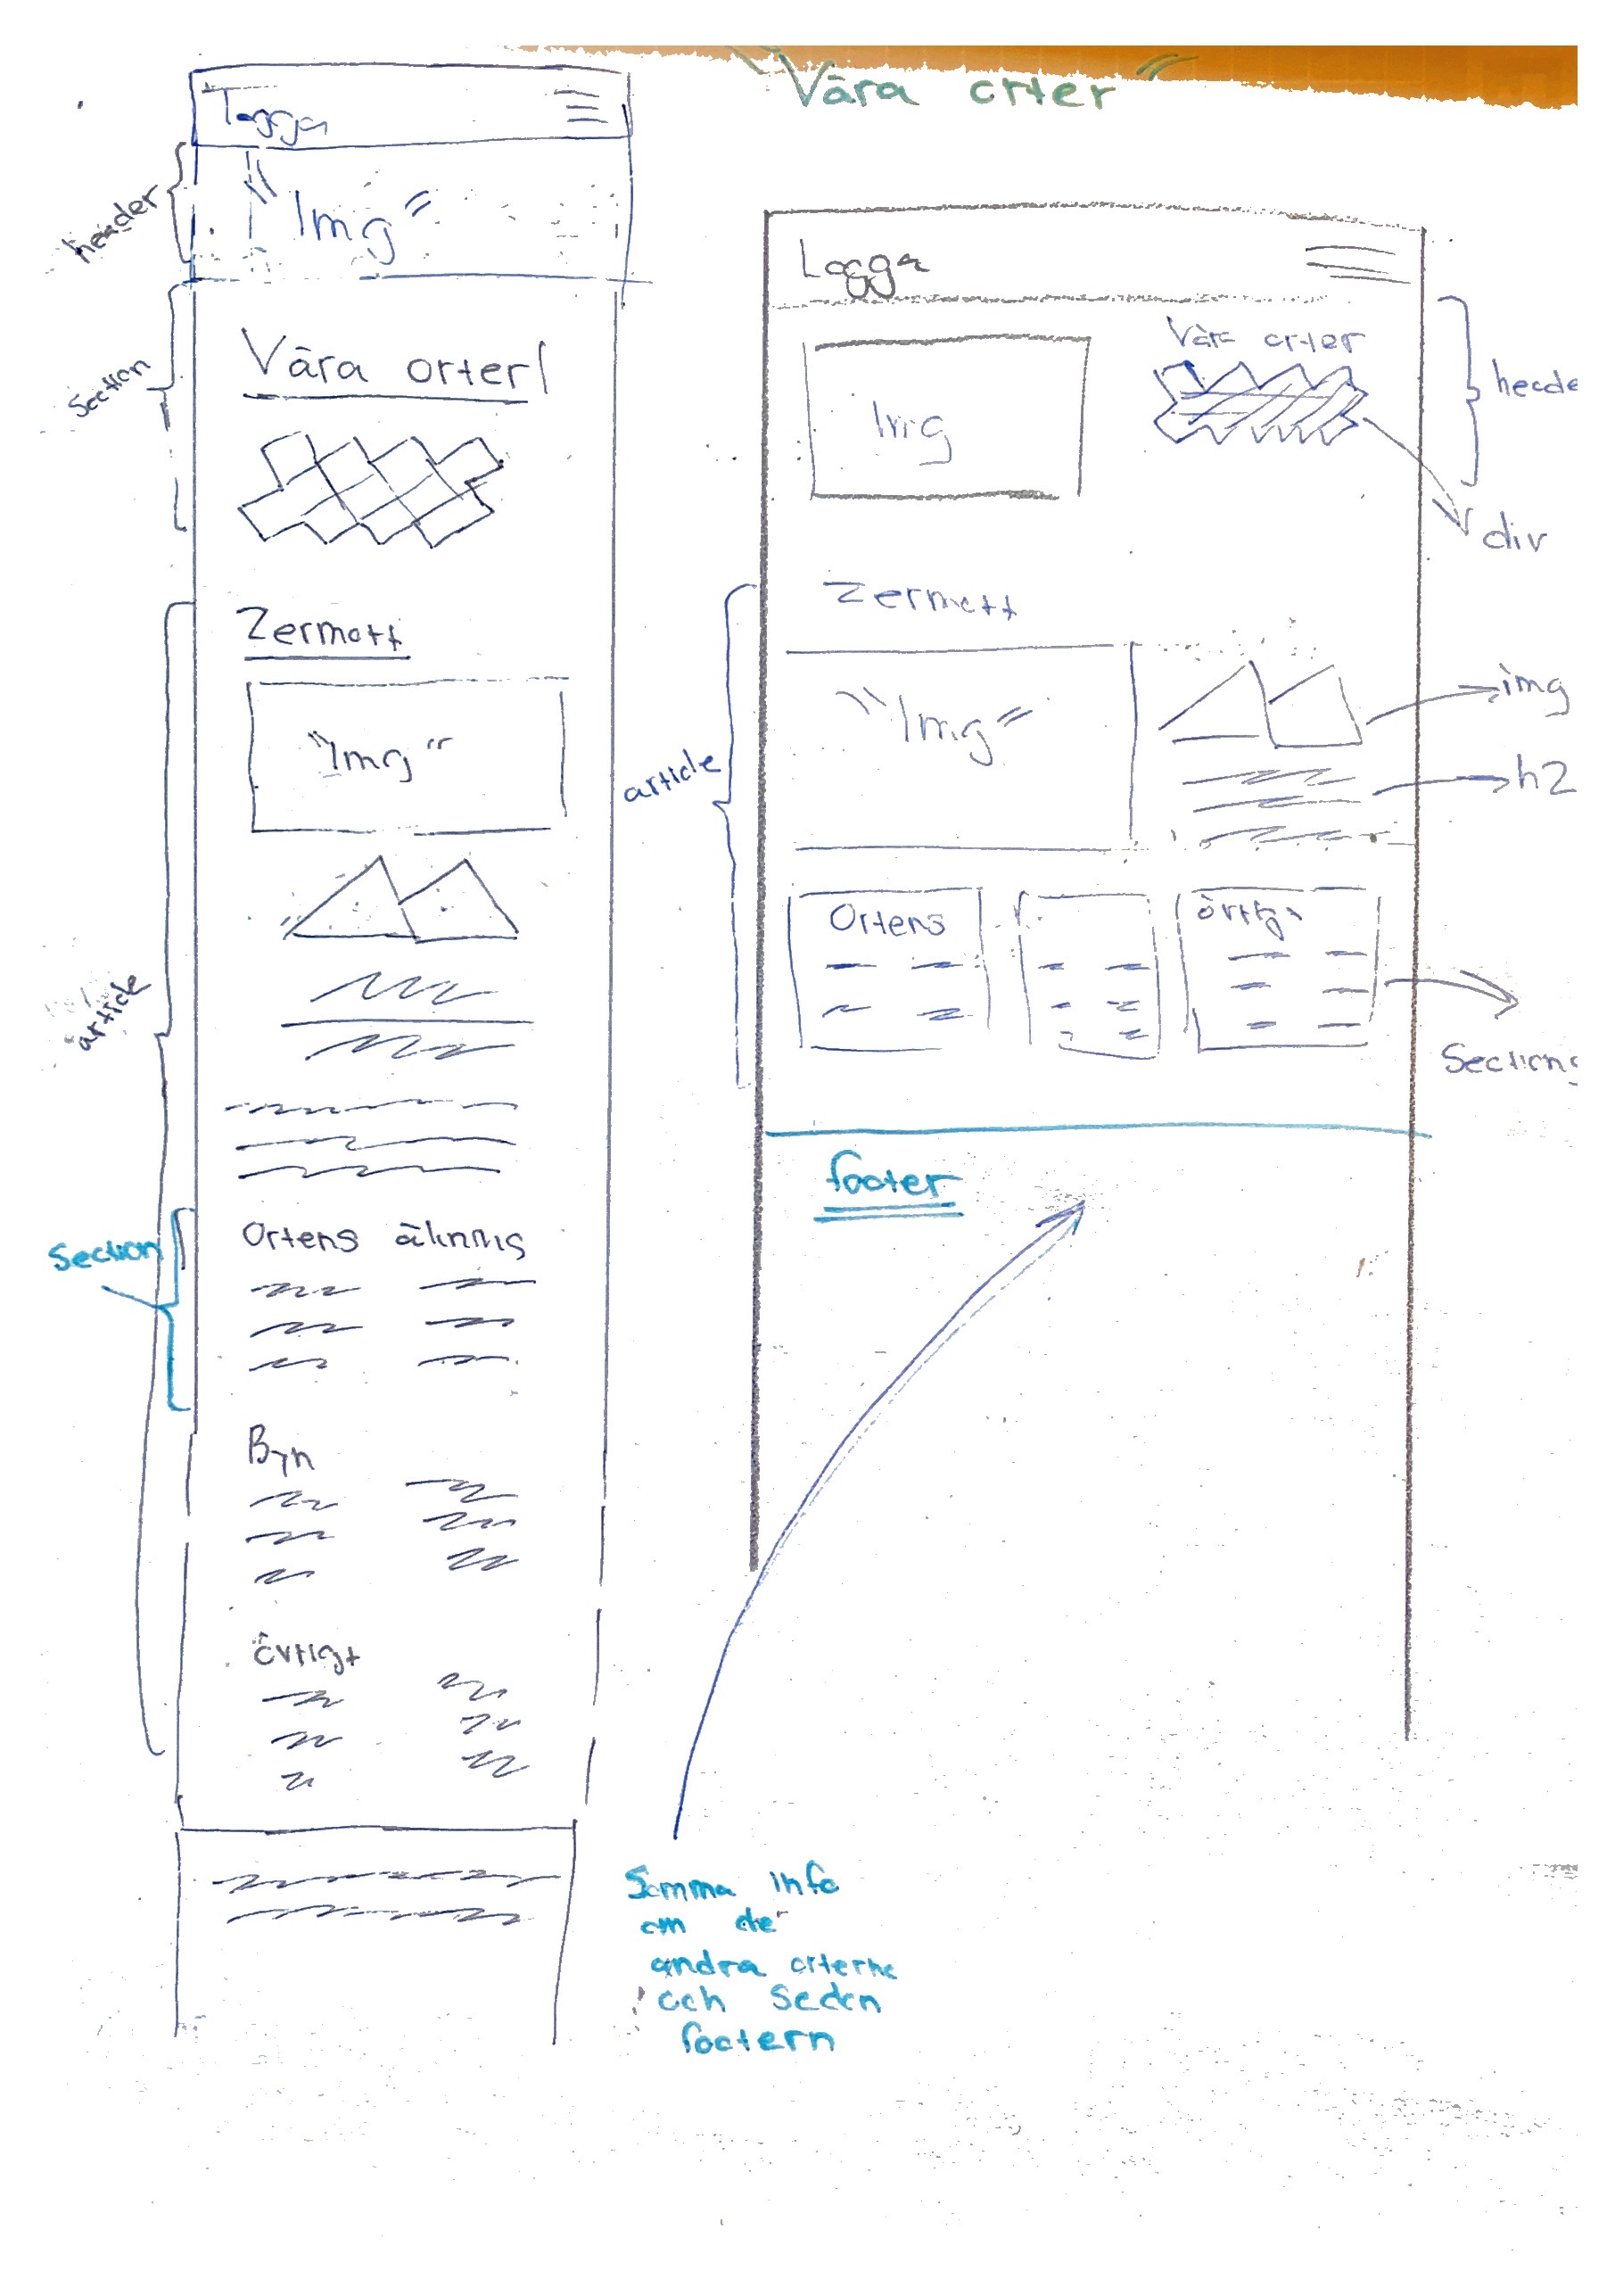 "Våra orter"
Logga
"Img"
header
Våra orter
Section
Zermatt
"Img"
article
Ortens
Section
Byn
övrigt
Logga
Img
Våra orter
heade
div
Zermatt
"Img"
img
h2
article
Ortens
övrigt
Sections
footer
Samma info
om de
andra orterna
och sedan
footern